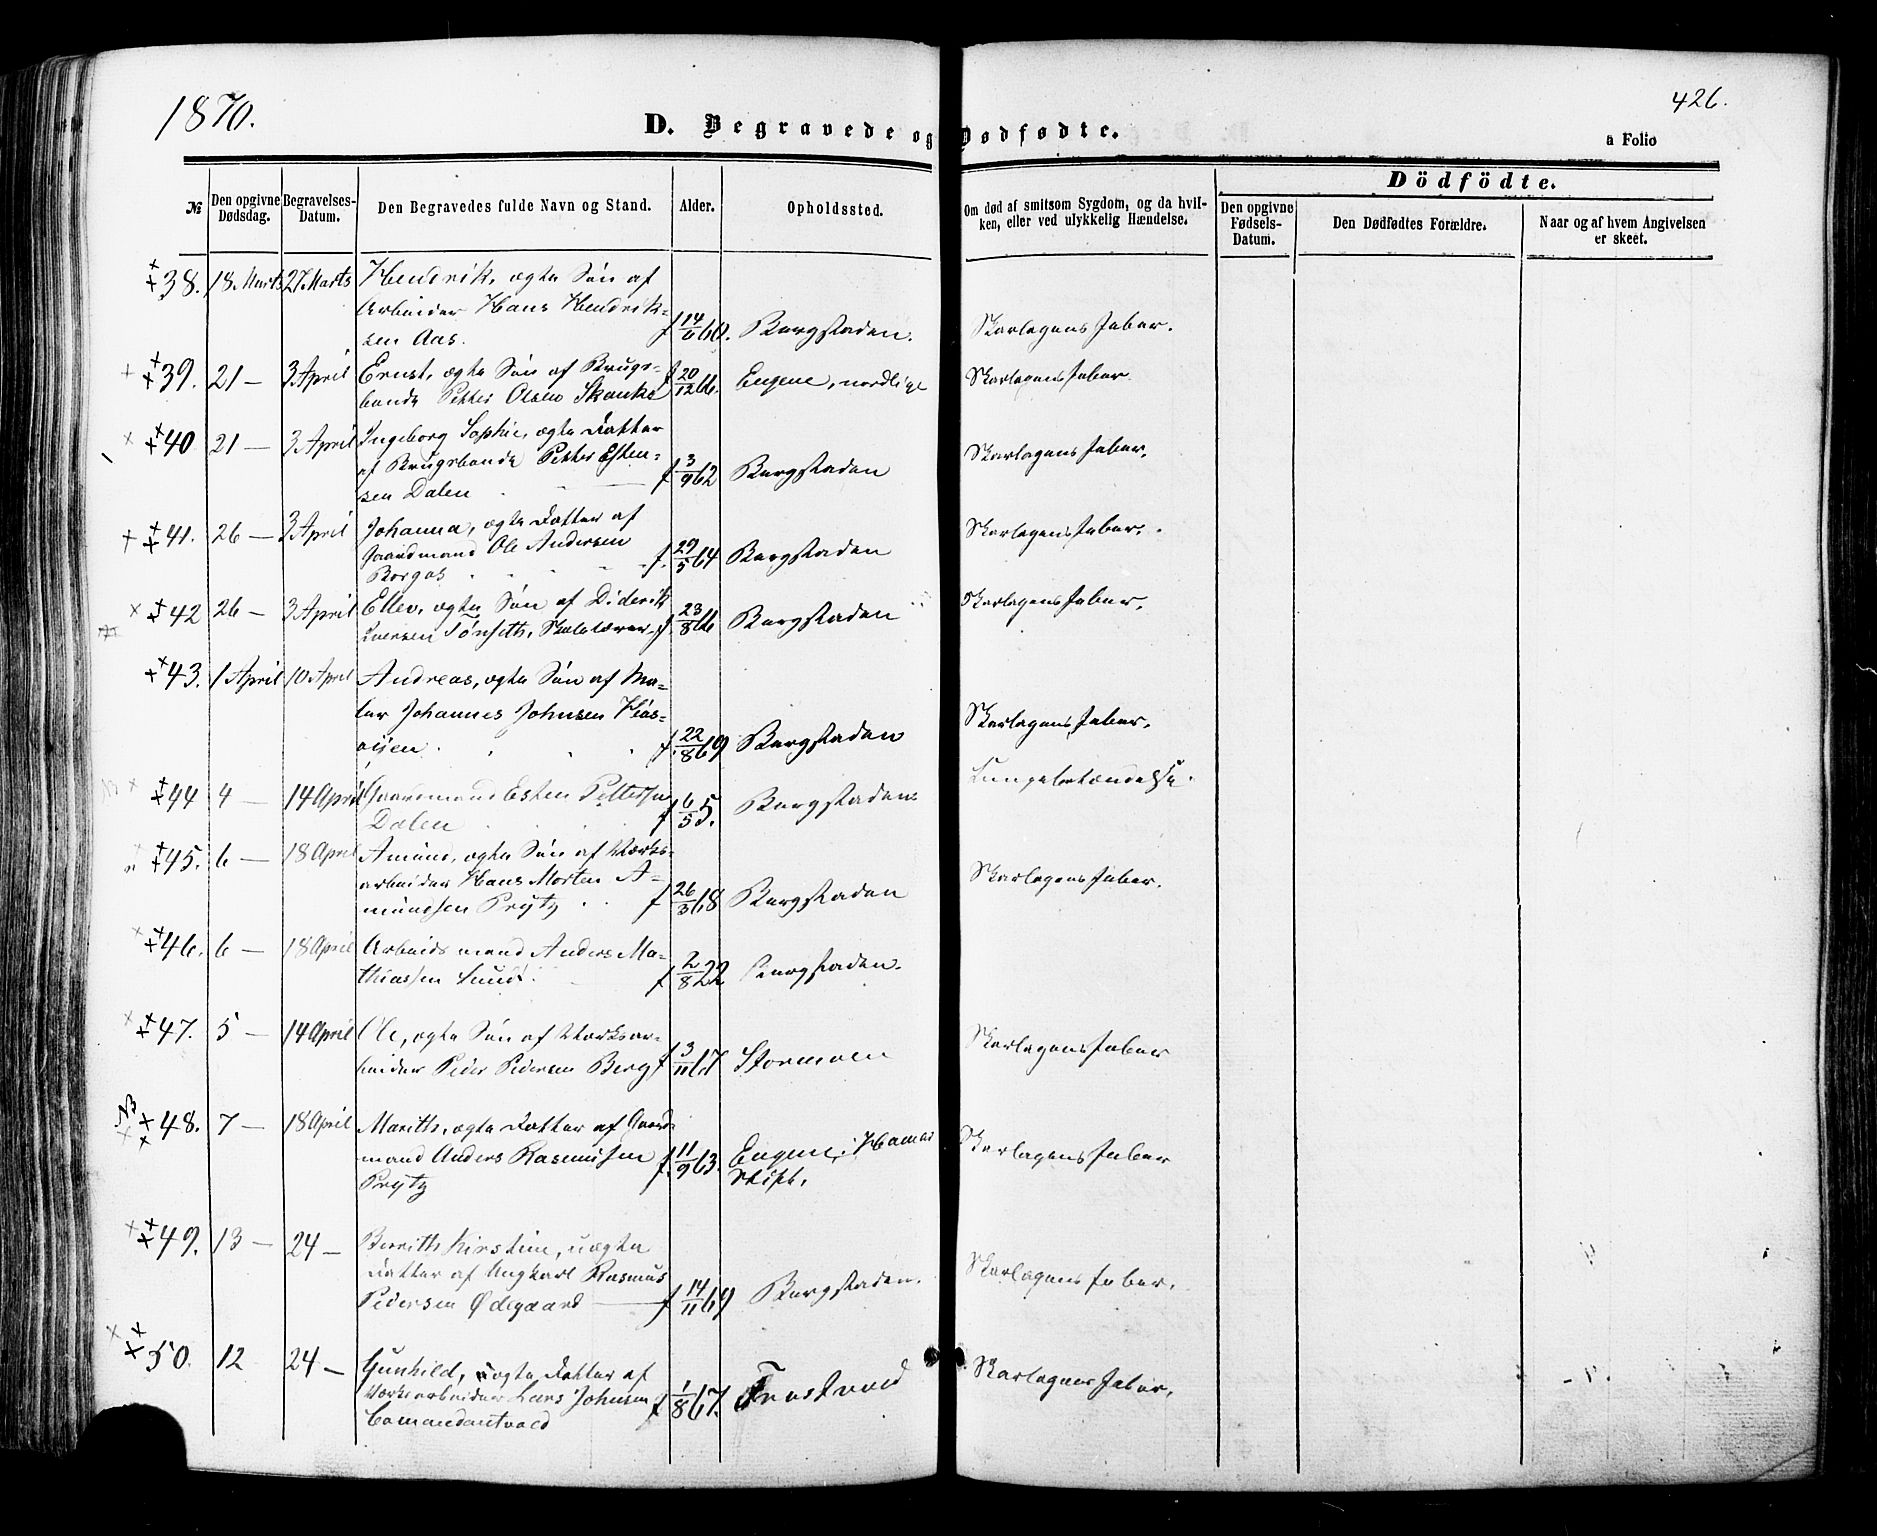 1870.
426.
D. Begravede og Dødfødte.
a Folio
№
Den opgivne Dødsdag.
Begravelses-Datum.
Den Begravedes fulde Navn og Stand.
Alder.
Opholdssted.
Om død af smitsom Sygdom, og da hvil-
ken, eller ved ulykkelig Hændelse.
Dödfödte.
Den opgivne Fødsels-Datum.
Den Dødfødtes Forældre.
Naar og af hvem Angivelsen er skeet.
38. 18 Marts 27 Marts Hendrik, ægte Søn af
Arbeider Hans Hendrik-
sen Aas. f 14/ 60. Bergstaden. Skarlagensfeber.
39. 21 — 3 April Ernst, ægte Søn af Brugs-
bonde Petter Olsen Skanke f 20/12 66. Eugene, nordlige Skarlagensfeber.
40 21 — 3 April Ingeborg Sophie, ægte Datter
af Brugsbonde Petter Esten-
sen Dalen f 3/9 62 Bergstaden Skarlagensfeber.
41. 26 — 3 April Johanna, ægte Datter af
Gaardmand Ole Andersen
Borgos f. 29/5 64 Bergstaden Skarlagensfeber.
42 26 — 3 April Ellev, ægte Søn af Diderik
Iversen Tønseth, Skolelærer f 23/8 66 Bergstaden Skarlagensfeber.
43. 1 April 10 April Andreas, ægte Søn af Ma-
ler Johannes Johnsen Kiøs-
øien f. 22/8 69 Bergstaden Skarlagensfeber.
44 4 — 14 April Gaardmand Esten Pettersen
Dalen f 6/5 5. Bergstaden. Lungebetændelse.
45. 6 — 18 April Amund, ægte Søn af Værks-
arbeider Hans Morten A-
mundsen Prytz f 26/3 68 Bergstaden Skarlagensfeber.
46. 6 — 18 April Arbeidsmand Anders Ma-
thiassen Lund. f 2/8 22 Bergstaden.
47. 5 — 14 April Ole, ægte Søn af Værksar-
beider Peder Pedersen Berg f 3/11 67 Stormoen Skarlagensfeber
NB
48. 7 — 18 April Marith, ægte Datter af Gaard-
mand Anders Rasmussen
Prytz f. 11/9 63. Eugene, Skarlagensfeber
49. 13 — 24 — Berith Kirstine, uægte
Datter af Ungkarl Rasmus
Pedersen Ødegaard — f 14/11 69 Bergstaden. Skarlagensfeber.
50. 12 24 — Gunhild, uægte Datter af
Værksarbeider Lars Johnsen f 1/8 67. Skarlagensfeber.
Comandantvold